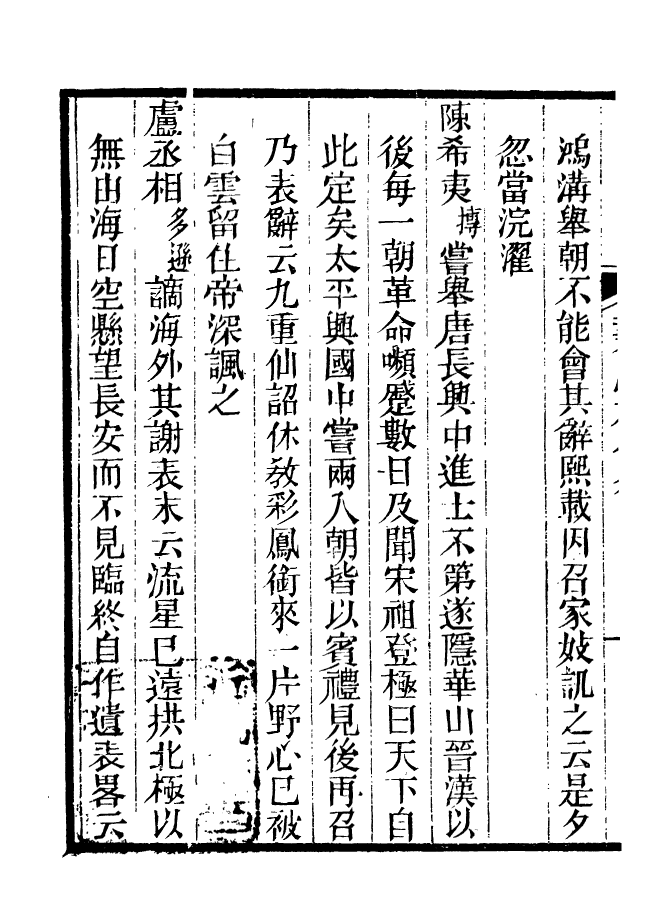 鴻溝舉朝不能會其辭熙載因召家妓訊之云是夕
忽當浣濯
陳希夷摶嘗舉唐長興中進士不第遂隱華山晉漢以
後每一朝革命嚬蹙數日及聞宋祖登極曰天下自
此定矣太平興國中嘗兩入朝皆以賓禮見後再召
乃表辭云九重仙詔休教彩鳳銜來一片野心已被
白雲留住帝深諷之
盧丞相多遜謫海外其謝表末云流星已遠拱北極以
無由海日空懸望長安而不見臨終自作遺表畧云